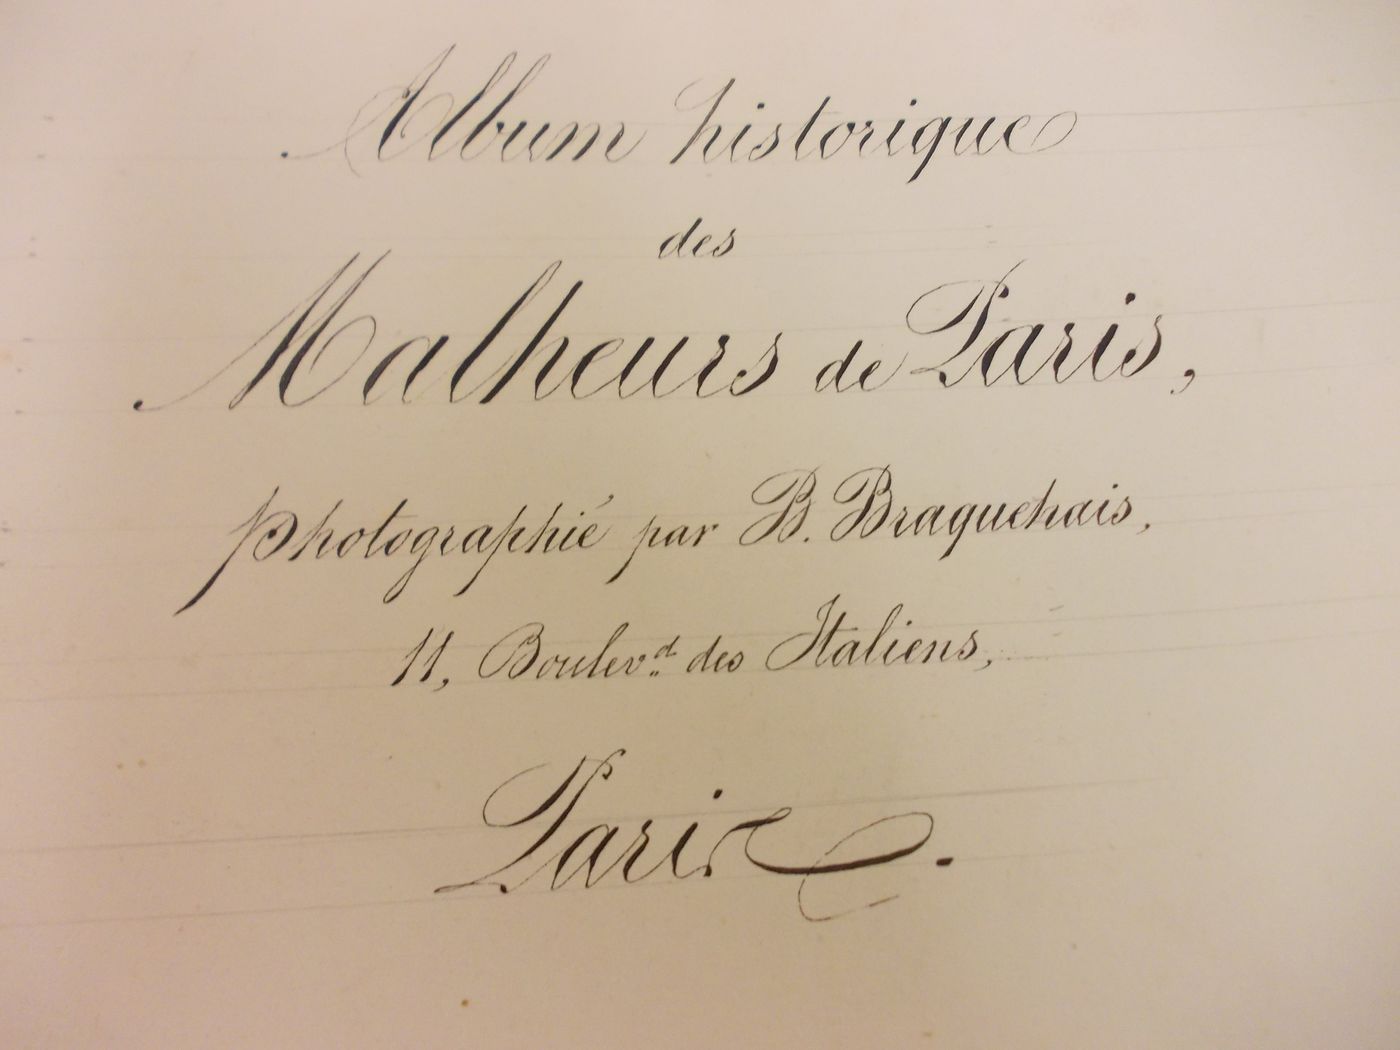 Album historique
des
Malheurs de Paris,
photographié par B. Braquehais,
11, Boulev.d des Italiens,
Paris.